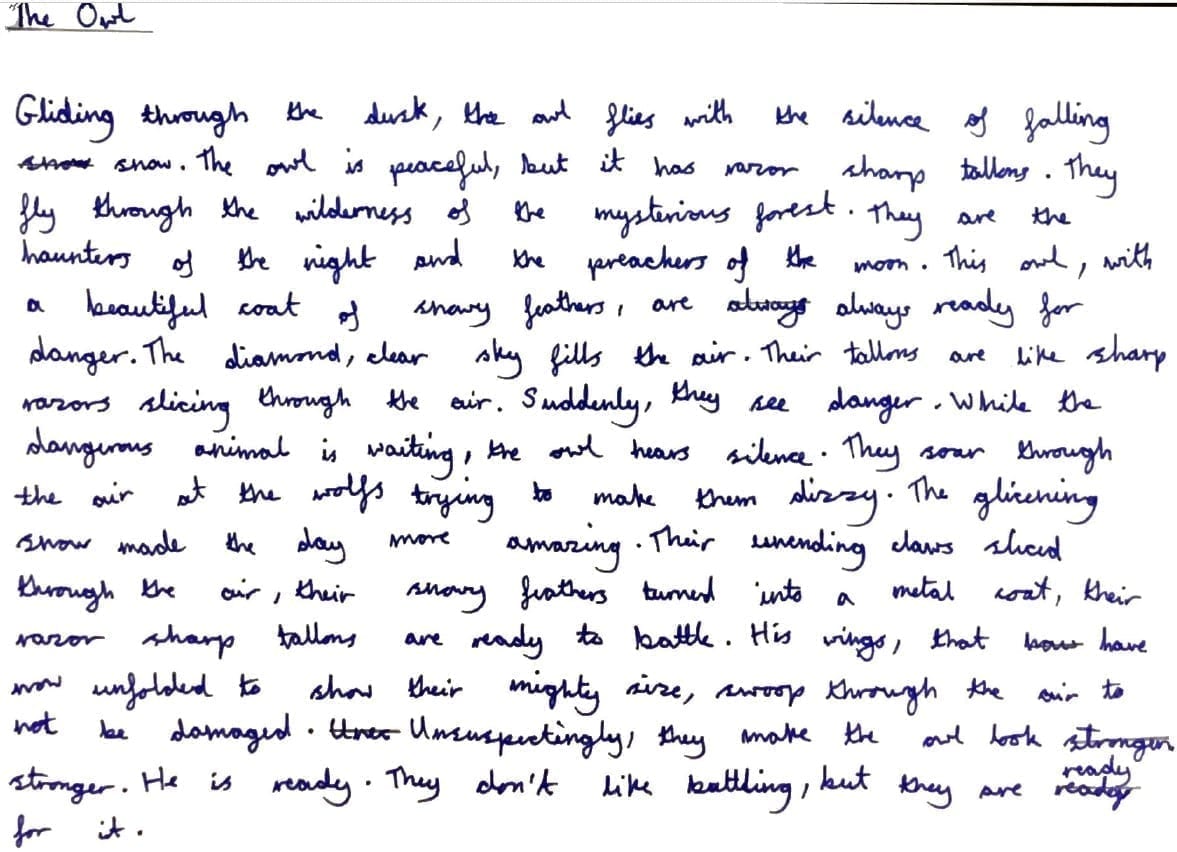 The Owl
Gliding through the dusk, the owl flies with the silence of falling
snow snow. The owl is peaceful, but it has razor sharp tallons. They
fly through the wilderness of the mysterious forest. They are the
haunters of the night and the preachers of the moon. This owl, with
a beautiful coat of snowy feathers, are always always ready for
danger. The diamond, clear sky fills the air. Their tallons are like sharp
razors slicing through the air. Suddenly, they see danger. While the
dangerous animal is waiting, the owl hears silence. They soar through
the air at the wolfs trying to make them dizzy. The glicening
snow made the day more amazing. Their unending claws sliced
through the air, their snowy feathers turned into a metal coat, their
razor sharp tallons are ready to battle. His wings, that have
now unfolded to show their mighty size, swoop through the air to
not be damaged. Unsuspectingly, they make the owl look stronger
stronger. He is ready. They don't like battling, but they are ready
for it.